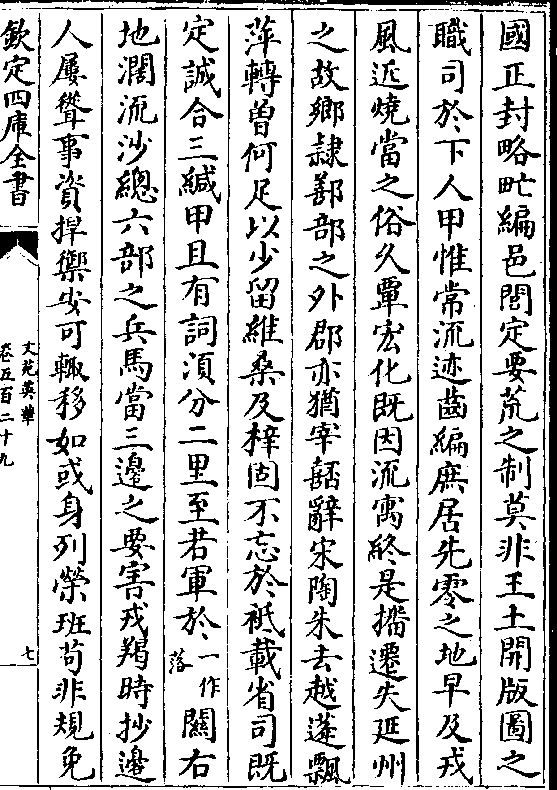 國正封略甿編邑閭定要荒之制莫非王土開版圖之
職司於下人甲惟常流迹齒編庶居先零之地早及戎
風近燒當之俗久覃宏化既因流寓終是播遷失延州
之故鄉隷鄯部之外郡亦猶宰嚭辭宋陶朱去越蓬飄
萍轉曽何足以少留維桑及梓固不忘於祗載省司既
定誠合三緘甲且有詞湏分二里至若軍於一作落關右
地濶流沙總六部之兵馬當三邊之要害戎羯時抄邊
人屢聳事資捍禦安可輙移如或身列榮班苟非規免
欽定四庫全書
文苑英華
卷五百二十九
七